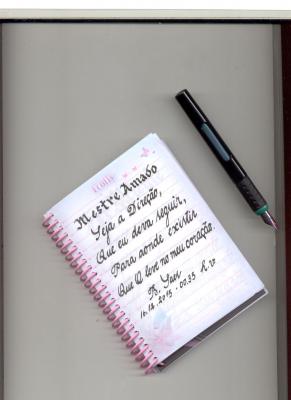 Mestre Amado
Seja a Direção,
Que eu deva seguir,
Para aonde existir
Que O leve no meu coração.
16.12.2015 - 00:33